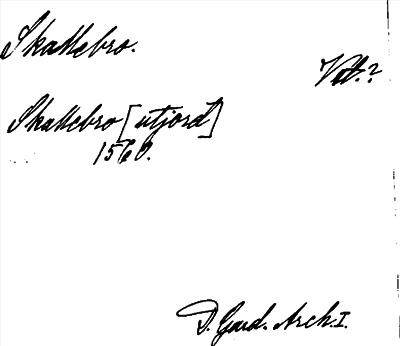 Skallebro.
Vtt.?
Skallebro [utjord]
1560.
D. Gard. Arch. I.